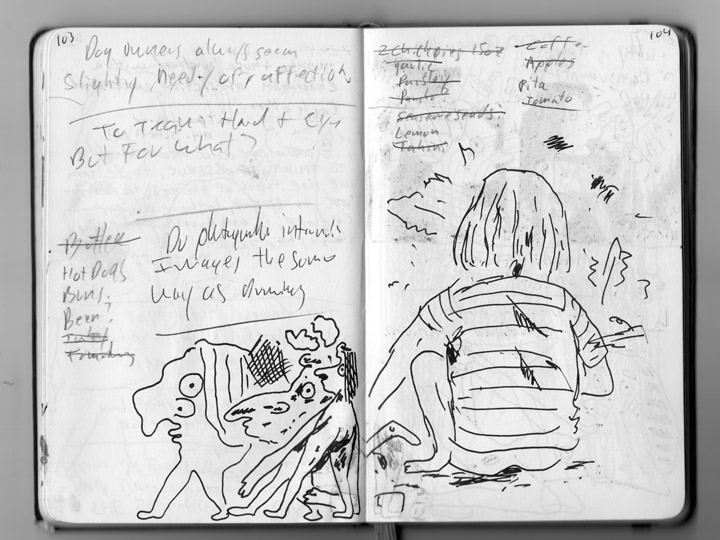 103
Dog owners always seem
slightly needy of affection
To Train Hard +
But For what?
Butter
Hot Dogs
Buns
Beer
Do photographs
Images the same
way as drawing
104
2 Chickpeas 15oz
garlic
Parsley
Sesame seeds
Lemon
Tahini
Coffee
Apples
Pita
Tomato